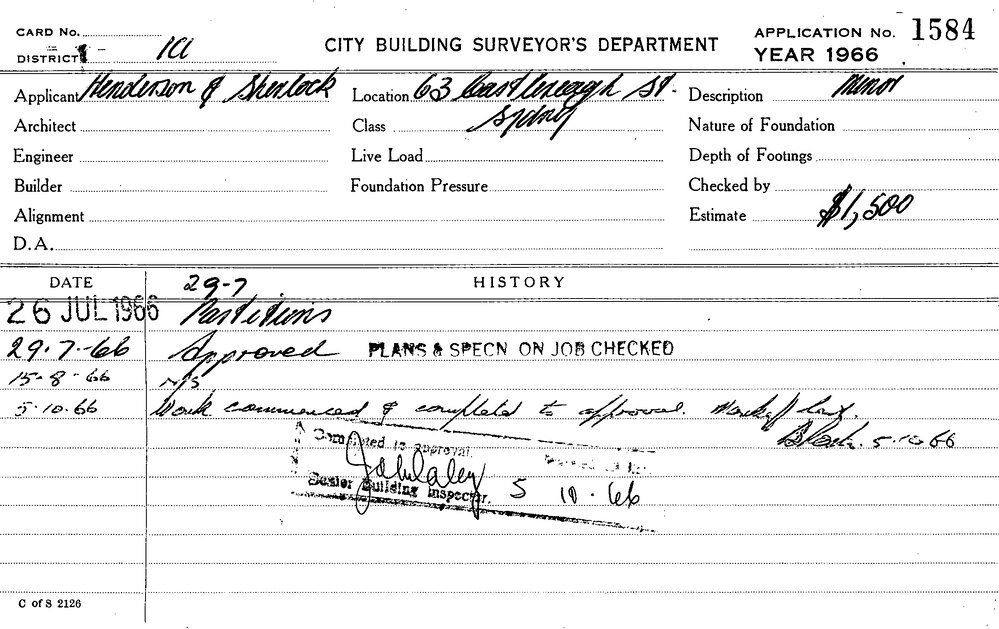 CARD No.
DISTRICT
CITY BUILDING SURVEYOR'S DEPARTMENT
APPLICATION No. 1584
YEAR 1966
Applicant Henderson & Sherlock
Location 63 Castlereagh St.
Sydney
Description Minor
Architect
Class
Nature of Foundation
Engineer
Live Load
Depth of Footings
Builder
Foundation Pressure
Checked by
Alignment
Estimate $1,500
D.A.
DATE
HISTORY
29-7
26 JUL 1966 Partitions
29.7.66 Approved PLANS & SPECN ON JOB CHECKED
15-8-66 N/S
5.10.66 Work commenced & completed to approval.
5.10.66
Completed to approval.
Senior Building Inspector.
5 10.66
C of S 2126